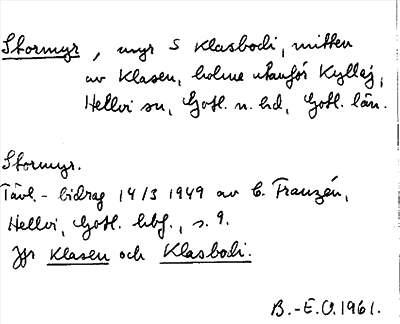 Stormyr, myr S Klasbodi, mitten
av Klasen, holme utanför Kyllej,
Hellvi sn, Gotl. n. hd, Gotl. län.
Stormyr.
Tävl.-bidrag 14/3 1949 av C. Franzén,
Hellvi, Gotl. hbf., s. 9.
Jfr Klasen och Klasbodi.
B.-E.O. 1961.